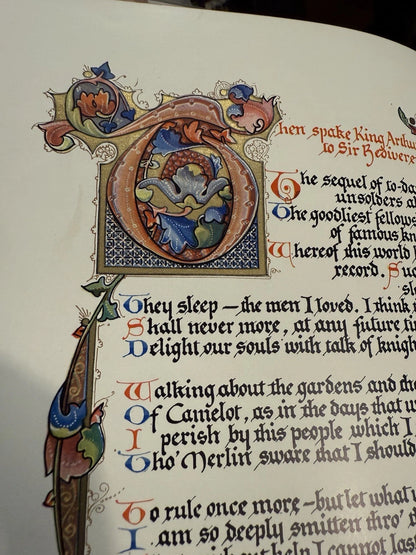 Then spake King Arthu
to Sir Bedivere
The sequel of to-da
unsolders al
The goodliest fellows
of famous kn
Whereof this world h
record. Su
sl
They sleep — the men I loved. I think
Shall never more, at any future ti
Delight our souls with talk of knigh
Walking about the gardens and the
Of Camelot, as in the days that w
I perish by this people which I
Tho' Merlin sware that I should
To rule once more — but let what
I am so deeply smitten thro'
without help I cannot las